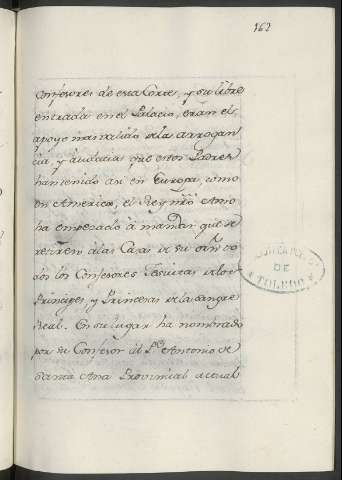 162
Confesores de esta Corte, y su libre
entrada en el Palacio, eran el
apoyo mas valido de la arrogan
cia, y audacia que estos Padres
han tenido asi en Europa, como
en America, el Rey mio Amo
ha empezado à mandar que se
retiren à las Casas de su orn to
dos los Confesores Jesuitas de los
Principes, y Princesas de la sangre
Real. En su lugar ha nombrado
por su Confesor al Pe Antonio de
Santa Ana Provincial actual
DE
TOLEDO